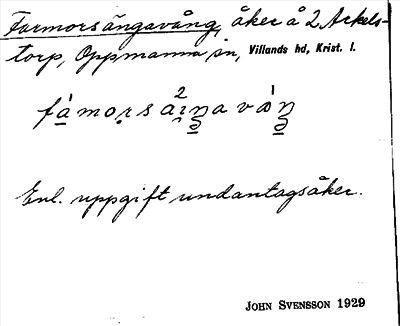 Farmorsängavång, åker å 2 Arkels-
torp, Oppmanna sn, Villands hd, Krist. l.
Enl. uppgift undantagsåker.
JOHN SVENSSON 1929